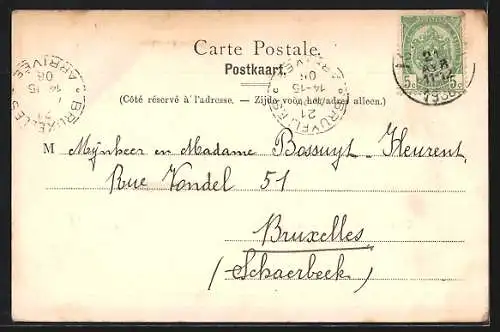 Carte Postale.
Postkaart.
(Côté réservé à l'adresse. - Zijde voor het adres alleen.)
M Mynheer en Madame Bossuyt-Heurent
Rue Vondel 51
Bruxelles
(Schaerbeek)
BRUXELLES
21
14-15
06
ARRIVÉE
BRUXELLES
21
14-15
06
ARRIVÉE
21
5c
5c